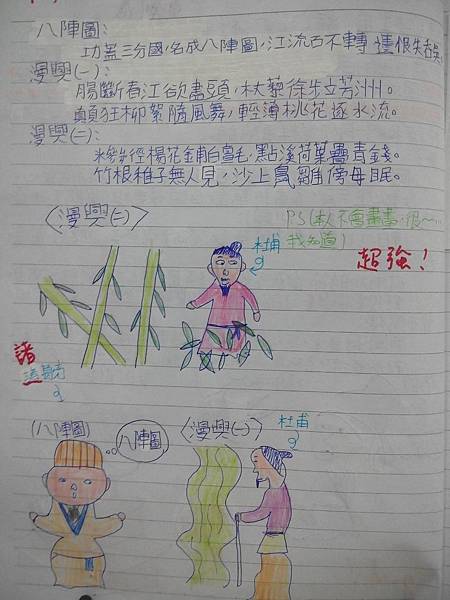 八陣圖:
功蓋三分國,名成八陣圖,江流石不轉 遺恨失吞吳
漫興(一):
腸斷春江欲盡頭,杖藜徐步立芳洲。
顛狂柳絮隨風舞,輕薄桃花逐水流。
漫興(二):
米參徑楊花鋪白氈,點溪荷葉疊青錢。
竹根稚子無人見,沙上鳧雛傍母眠。
〈漫興(二)〉
PS(本人不會畫畫,
我知道)
杜甫
超強!
諸
(八陣圖)
八陣圖
〈漫興(一)〉
杜甫